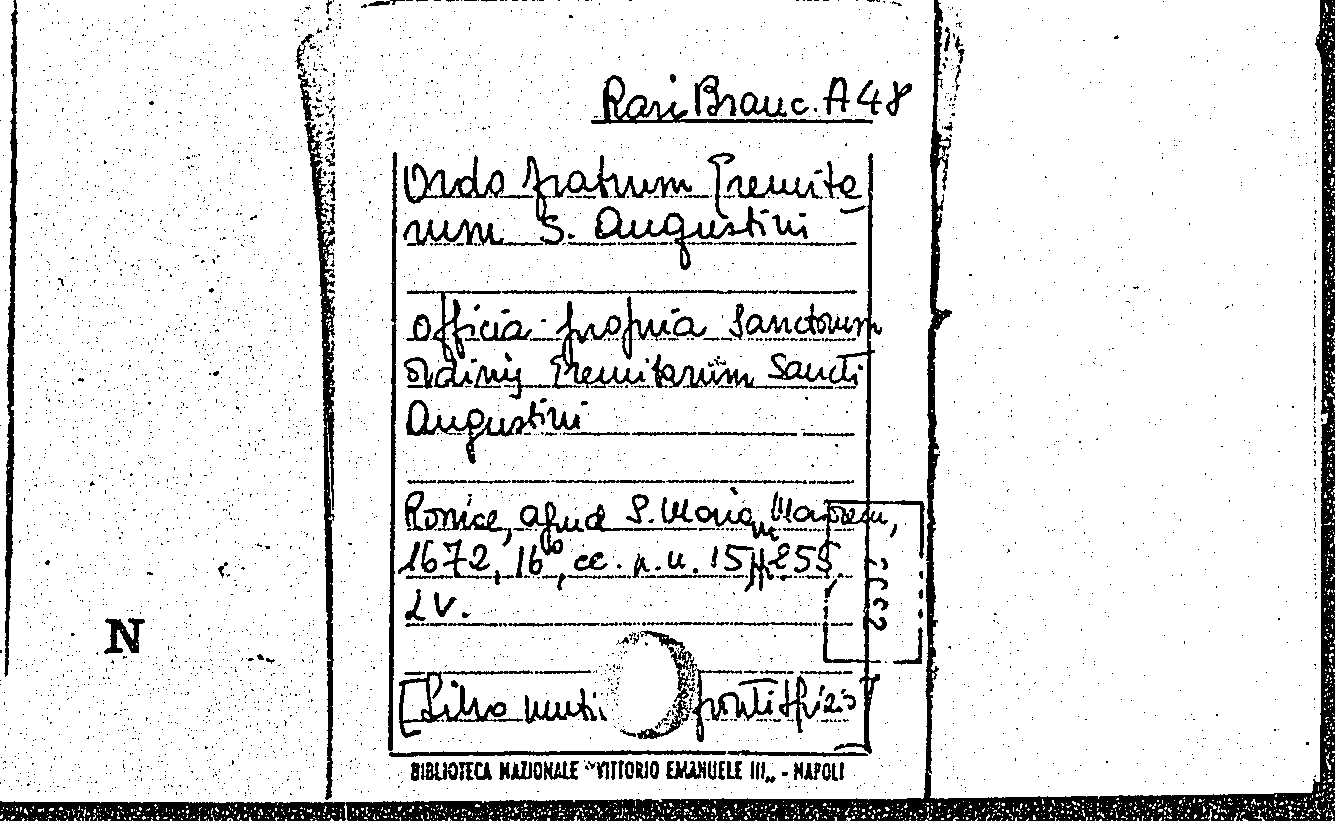 Rari Branc. A 48
Ordo fratrum Eremita
rum S. Augustini
Officia propria Sanctorum
Ordinis Eremitarum Sancti
Augustini
Romae, apud S. Mariam Maiorem,
1672, 16°, cc. n.n. 15, pp. 255
1 v.
[Libro frontispizio]
N
BIBLIOTECA NAZIONALE "VITTORIO EMANUELE III" - NAPOLI